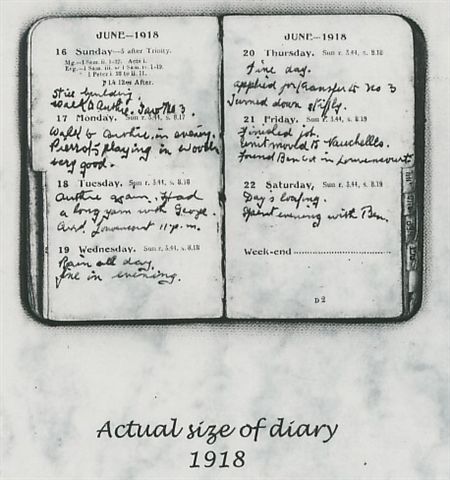 JUNE—1918
16 Sunday—3 after Trinity.
Mg.—1 Sam. ii. 1-27. Acts i.
Evg.—1 Sam. iii. or 1 Sam. iv. 1-19.
1 Peter i. 22 to ii. 11.
Still building
walk to Authie. Saw No 3
17 Monday. Sun r. 3.44, s. 8.17
Walk to Authie in evening.
Pierrots playing in wood
very good.
18 Tuesday. Sun r. 3.44, s. 8.18
Authie again. Had
a long yarn with George.
Louvencourt 11 p.m.
19 Wednesday. Sun r. 3.44, s. 8.18
Rain all day
fine in evening.
JUNE—1918
20 Thursday. Sun r. 3.44, s. 8.18
Fine day.
applied for transfer to No 3
Turned down
21 Friday. Sun r. 3.44, s. 8.19
Finished job.
Unit moved to Vauchelles.
Found Ben in Louvencourt
22 Saturday, Sun r. 3.44, s. 8.19
Day's loafing.
Spent evening with Ben.
Week-end
D 2
Actual size of diary
1918